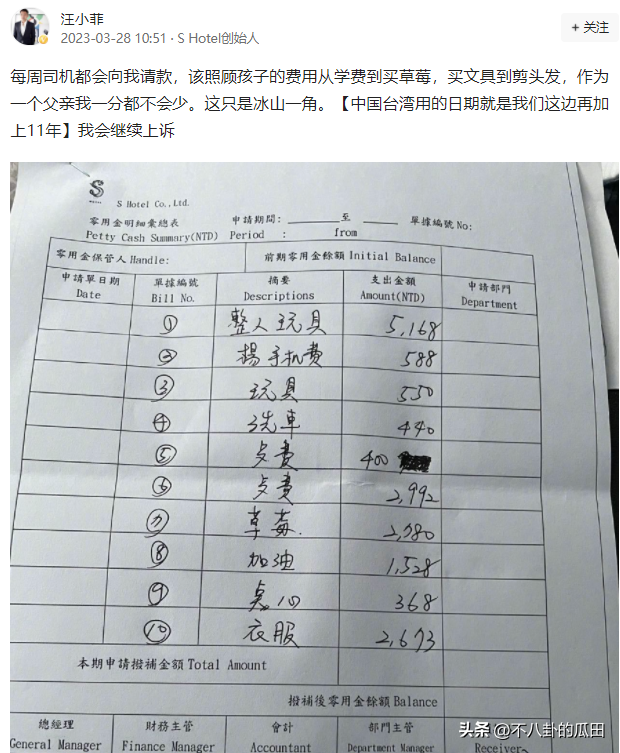 汪小菲
2023-03-28 10:51 · S Hotel创始人
+ 关注
每周司机都会向我请款，该照顾孩子的费用从学费到买草莓，买文具到剪头发，作为
一个父亲我一分都不会少。这只是冰山一角。【中国台湾用的日期就是我们这边再加
上11年】我会继续上诉
S
S Hotel Co., Ltd.
零用金明細彙總表 申請期間: 至 單據編號 No:
Petty Cash Summary(NTD) Period : from
零用金保管人 Handle: 前期零用金餘額 Initial Balance
申請單日期 單據編號 摘要 支出金額 申請部門
Date Bill No. Descriptions Amount(NTD) Department
① 整人玩具 5,168
② 楊手机費 588
③ 玩具 550
④ 洗車 440
⑤ 食費 400
⑥ 食費 2,992
⑦ 草莓 2,380
⑧ 加油 1,528
⑨ 點心 368
⑩ 衣服 2,673
本期申請撥補金額 Total Amount
撥補後零用金餘額 Balance
總經理 財務主管 會計 部門主管
General Manager Finance Manager Accountant Department Manager Receiver
头条 @不八卦的瓜田